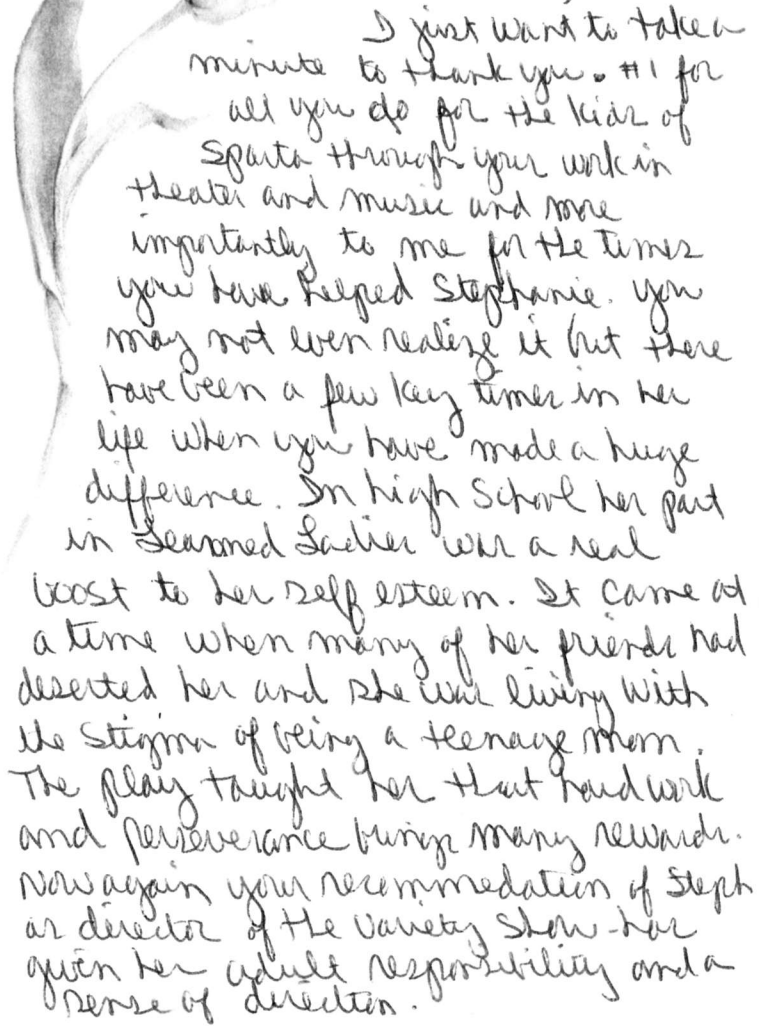 I just want to take a
minute to thank you. #1 for
all you do for the kids of
Sparta through your work in
theater and music and more
importantly to me for the times
you have helped Stephanie. You
may not even realize it but there
have been a few key times in her
life when you have made a huge
difference. In high School her part
in Learned Ladies was a real
boost to her self esteem. It came at
a time when many of her friends had
deserted her and she was living with
the stigma of being a teenage mom.
The play taught her that hard work
and perseverance brings many rewards.
Now again your recommedation of Steph
as director of the Variety Show - has
given her adult responsibility and a
sense of direction.